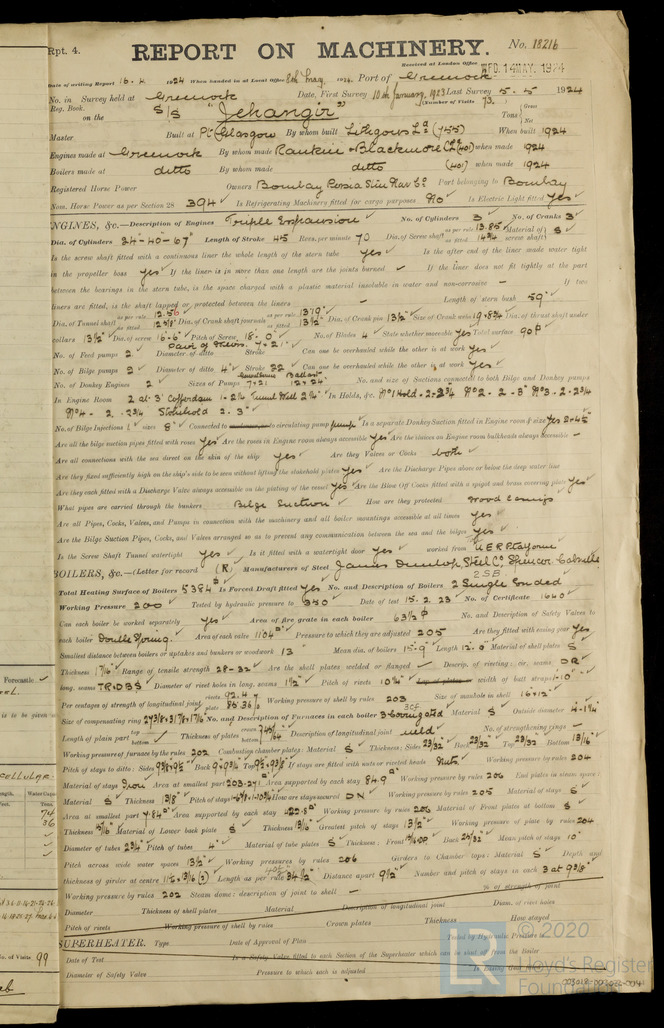 Rpt. 4.
REPORT ON MACHINERY. No. 18216
Received at London Office WED. 14 MAY. 1924
Date of writing Report 16. 4 1924 When handed in at Local Office 8th May 1924. Port of Greenock
No. in Survey held at Greenock Date, First Survey 10th January, 1923 Last Survey 5. 5 1924
Reg. Book. (Number of Visits 73.)
on the S/S "Jehangir" Tons Gross Net
Master Built at Pt Glasgow By whom built Lithgows Ld (755) When built 1924
Engines made at Greenock By whom made Rankin & Blackmore Ld (401) when made 1924
Boilers made at ditto By whom made ditto (401) when made 1924
Registered Horse Power Owners Bombay Persia Stm Nav Co. Port belonging to Bombay
Nom. Horse Power as per Section 28 394 Is Refrigerating Machinery fitted for cargo purposes No Is Electric Light fitted Yes
ENGINES, &c.—Description of Engines Triple Expansion No. of Cylinders 3 No. of Cranks 3
Dia. of Cylinders 24-40-67" Length of Stroke 45 Revs. per minute 70 Dia. of Screw shaft as per rule 13.85 as fitted 14 3/4 Material of screw shaft S
Is the screw shaft fitted with a continuous liner the whole length of the stern tube yes Is the after end of the liner made water tight
in the propeller boss yes If the liner is in more than one length are the joints burned — If the liner does not fit tightly at the part
between the bearings in the stern tube, is the space charged with a plastic material insoluble in water and non-corrosive — If two
liners are fitted, is the shaft lapped or protected between the liners — Length of stern bush 59"
Dia. of Tunnel shaft as per rule 12.56 as fitted 12 5/8" Dia. of Crank shaft journals as per rule 13.19" as fitted 13 1/2" Dia. of Crank pin 13 1/2" Size of Crank webs Dia. of thrust shaft under
collars 13 1/2" Dia. of screw 16-6" Pitch of Screw 18-0" No. of Blades 4 State whether moveable yes Total surface 90
No. of Feed pumps 2 Diameter of ditto Stroke Can one be overhauled while the other is at work yes
No. of Bilge pumps 2 Diameter of ditto 4" Stroke 22 Can one be overhauled while the other is at work yes
No. of Donkey Engines 2 Sizes of Pumps No. and size of Suctions connected to both Bilge and Donkey pumps
In Engine Room 2 at 3" Cofferdam 1-2 1/4 Tunnel Well 2 1/2" In Holds, &c. No 1 Hold - 2-2 3/4 No 2 - 2 - 3" No 3 - 2 - 2 3/4
No 4 - 2 - 2 3/4 Stokehold 2. 3"
No. of Bilge Injections 1 sizes 8" Connected to circulating pump Is a separate Donkey Suction fitted in Engine room & size Yes
Are all the bilge suction pipes fitted with roses Yes Are the roses in Engine room always accessible Yes Are the sluices on Engine room bulkheads always accessible —
Are all connections with the sea direct on the skin of the ship yes Are they Valves or Cocks both
Are they fixed sufficiently high on the ship's side to be seen without lifting the stokehold plates yes Are the Discharge Pipes above or below the deep water line
Are they each fitted with a Discharge Valve always accessible on the plating of the vessel yes Are the Blow Off Cocks fitted with a spigot and brass covering plate yes
What pipes are carried through the bunkers Bilge Suction How are they protected Wood Casings
Are all Pipes, Cocks, Valves, and Pumps in connection with the machinery and all boiler mountings accessible at all times yes
Are the Bilge Suction Pipes, Cocks, and Valves arranged so as to prevent any communication between the sea and the bilges yes
Is the Screw Shaft Tunnel watertight yes Is it fitted with a watertight door yes worked from U.E.R. Platform
BOILERS, &c.—(Letter for record (R) Manufacturers of Steel James Dunlop Steel Co. Spencer
2 SB
Total Heating Surface of Boilers 5384 Is Forced Draft fitted yes No. and Description of Boilers 2 Single Ended
Working Pressure 200 Tested by hydraulic pressure to 350 Date of test 15. 2. 23 No. of Certificate 1640
Can each boiler be worked separately yes Area of fire grate in each boiler 63 1/2 No. and Description of Safety Valves to
each boiler Double Spring Area of each valve 11.04 Pressure to which they are adjusted 205 Are they fitted with easing gear yes
Smallest distance between boilers or uptakes and bunkers or woodwork 13" Mean dia. of boilers 15-9" Length 12-0" Material of shell plates S
Thickness 1 7/16" Range of tensile strength 28-32 Are the shell plates welded or flanged — Descrip. of riveting: cir. seams DR
long. seams TR.DBS Diameter of rivet holes in long. seams 1 1/2" Pitch of rivets 10 1/4" width of butt straps 1-10"
Per centages of strength of longitudinal joint rivets 92.4 plate 85.36 Working pressure of shell by rules 203 Size of manhole in shell 16×12"
Size of compensating ring No. and Description of Furnaces in each boiler 3 Corrugated Material S Outside diameter 4-1 1/4"
Length of plain part top bottom Thickness of plates crown bottom Description of longitudinal joint weld No. of strengthening rings —
Working pressure of furnace by the rules 202 Combustion chamber plates: Material S Thickness: Sides 23/32" Back 23/32" Top 23/32 Bottom 13/16"
Pitch of stays to ditto: Sides Back Top If stays are fitted with nuts or riveted heads Nuts Working pressure by rules 204
Material of stays Iron Area at smallest part 2.03 Area supported by each stay 84.9 Working pressure by rules 206 End plates in steam space:
Material S Thickness 1 3/8" Pitch of stays How are stays secured DN Working pressure by rules 205 Material of stays S
Area at smallest part 7.84 Area supported by each stay 422.8 Working pressure by rules 206 Material of Front plates at bottom S
Thickness Material of Lower back plate S Thickness 13/16" Greatest pitch of stays 13 1/2" Working pressure of plate by rules 204
Diameter of tubes 2 3/4 Pitch of tubes 4" Material of tube plates S Thickness: Front Back 25/32" Mean pitch of stays 10"
Pitch across wide water spaces 13 1/2" Working pressures by rules 206 Girders to Chamber tops: Material S Depth and
thickness of girder at centre Length as per rule 34 1/2" Distance apart 9 1/2" Number and pitch of stays in each 3 at 9 3/8"
Working pressure by rules 202 Steam dome: description of joint to shell — % of strength of joint
Diameter Thickness of shell plates Material Description of longitudinal joint Diam. of rivet holes
Pitch of rivets Working pressure of shell by rules Crown plates Thickness How stayed
SUPERHEATER. Type Date of Approval of Plan Tested by Hydraulic Pressure to
Date of Test Is a Safety Valve fitted to each Section of the Superheater which can be shut off from the Boiler
Diameter of Safety Valve Pressure to which each is adjusted
© 2020
LR
Lloyd's Register
Foundation
Forecastle
is to be given
CELLULAR
74
36
No. of Visits 99